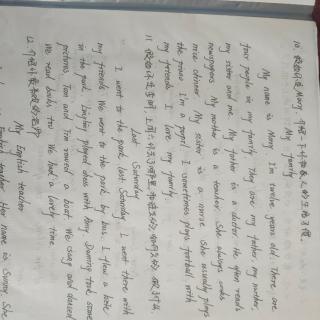 10. 假如你是Mary, 介绍一下你和家人的生活习惯。
My family
My name is Mary. I'm twelve years old. There are
four people in my family. They are my father, my mother,
my sister and me. My father is a doctor. He often reads
newspapers. My mother is a teacher. She always cooks
nice dinner. My sister is a nurse. She usually plays
the piano. I'm a pupil. I sometimes plays football with
my friends. I love my family.
11. 假如你是李明,
Last Saturday
I went to the park last Saturday. I went there with
my friends. We went to the park by bus. I flew a kite
in the park. Lingling played chess with Amy. Daming took some
pictures. Tom and Tim rowed a boat. We sang and danced.
We read books, too. We had a lovely time.
12. 介绍你最
My English teacher
English teacher. Her name is Sunny. She